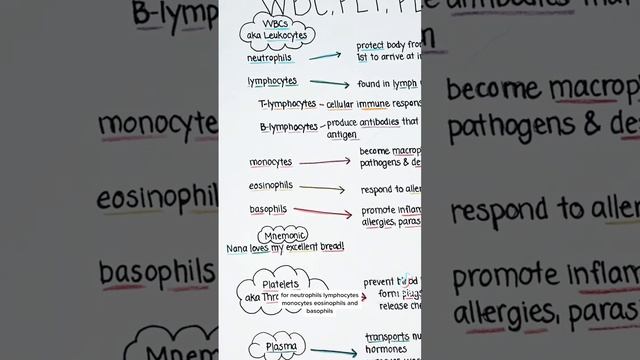 WBC, PLT, PL
WBCs
aka Leukocytes
neutrophils
protect body from
1st to arrive at
lymphocytes
found in lymph
T-lymphocytes - cellular immune respon
B-lymphocytes - produce antibodies that
antigen
monocytes
become macrop
pathogens & de
eosinophils
respond to aller
basophils
promote inflam
allergies, paras
Mnemonic
Nana loves my excellent bread!
Platelets
aka Thr
prevent blood
form plugs
release che
for neutrophils lymphocytes
monocytes eosinophils and
basophils
Plasma
transports nu
hormones
B-lymph
monocyte
eosinophil
basophils
antibodies that
become macrop
pathogens & de
respond to aller
promote inflam
allergies, paras